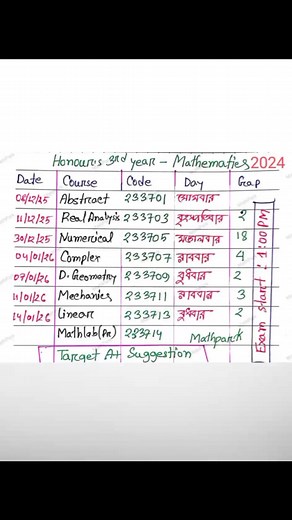 Honours 3rd year - Mathematics 2024
Date Course Code Day Gap
08/12/25 Abstract 233701 সোমবার
11/12/25 Real Analysis 233703 বৃহস্পতিবার 2
30/12/25 Numerical 233705 মঙ্গলবার 18
04/01/26 Complex 233707 রবিবার 4
07/01/26 D. Geometry 233709 বুধবার 2
11/01/26 Mechanics 233711 রবিবার 3
14/01/26 Linear 233713 বুধবার 2
Mathlab (Pr) 233714 Mathpark
Target A+ Suggestion
Exam start : 1:00 PM